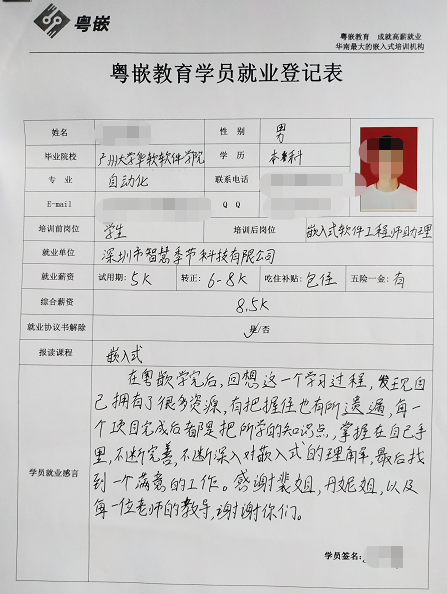 粤嵌
粤嵌教育 成就高薪就业
华南最大的嵌入式培训机构
粤嵌教育学员就业登记表
姓名 性 别 男
毕业院校 广州大学华软软件学院 学 历 本科
专 业 自动化 联系电话
E-mail Q Q
培训前岗位 学生 培训后岗位 嵌入式软件工程师助理
就业单位 深圳市智慧季节科技有限公司
就业薪资 试用期:5K 转正:6-8K 吃住补贴:包住 五险一金:有
综合薪资 8.5K
就业协议书解除 是/否
报读课程 嵌入式
学员就业感言
在粤嵌学完后,回想这一个学习过程,发现自
己拥有了很多资源,有把握住也有所遗漏,每一
个项目完成后都是把所学的知识点,掌握在自己手
里,不断完善,不断深入对嵌入式的理解,最后找
到一个满意的工作。感谢裴姐,丹妮姐,以及
每一位老师的教导,谢谢你们。
学员签名: